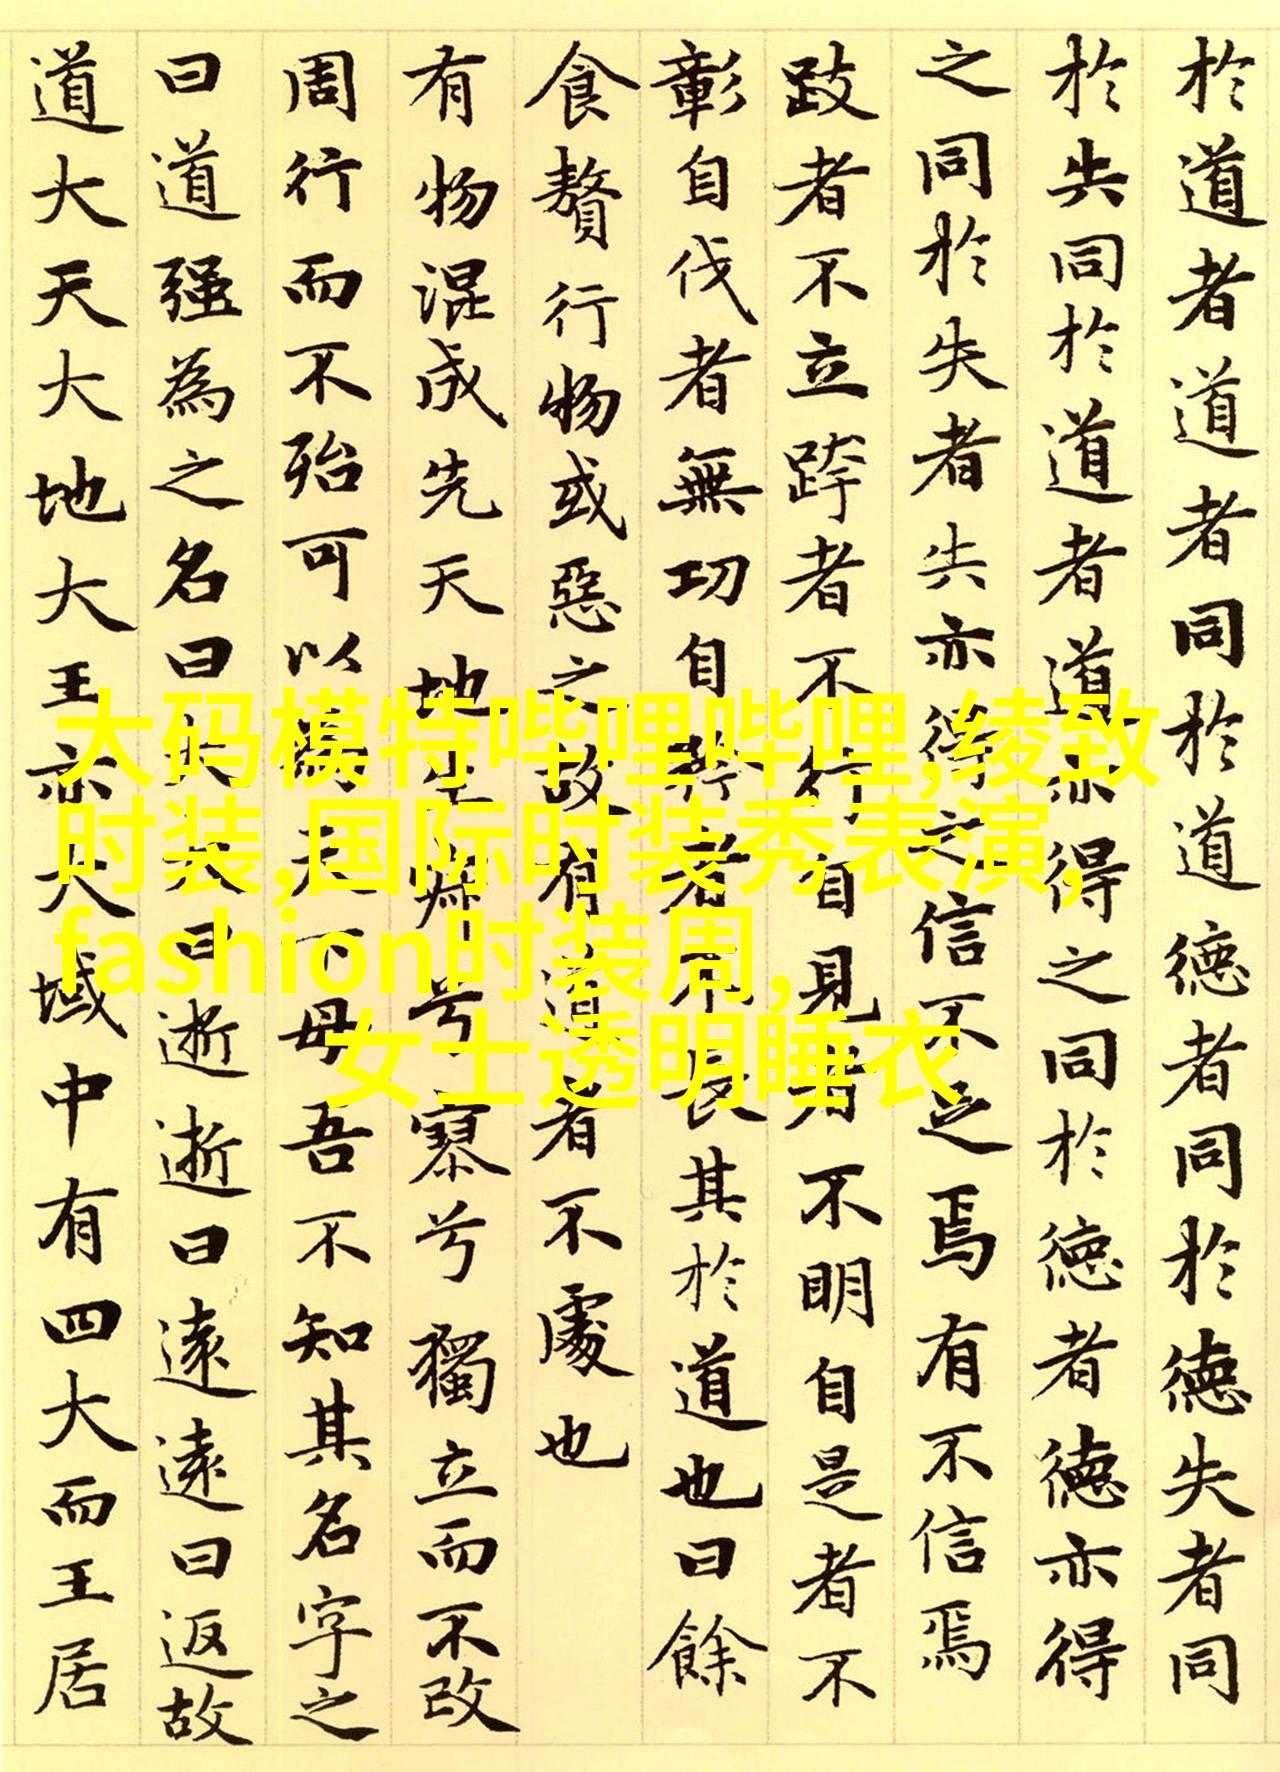 於道者道者同於道德者同於德失者同
於失同於道者道亦得之同於德者德亦得
之同於失者失亦得之信不足焉有不信焉
跂者不立跨者不行自見者不明自是者不
彰自伐者無功自矜者不長其於道也曰餘
食贅行物或惡之故有道者不處也
有物混成先天地生寂兮寥兮獨立而不改
周行而不殆可以為天下母吾不知其名字之
曰道强為之名曰大大曰逝逝曰遠遠曰返故
道大天大地大王亦大域中有四大而王居
大码模特哔哩哔哩,绫致
时装,国际时装秀表演,
fashion时装周,
女士透明睡衣